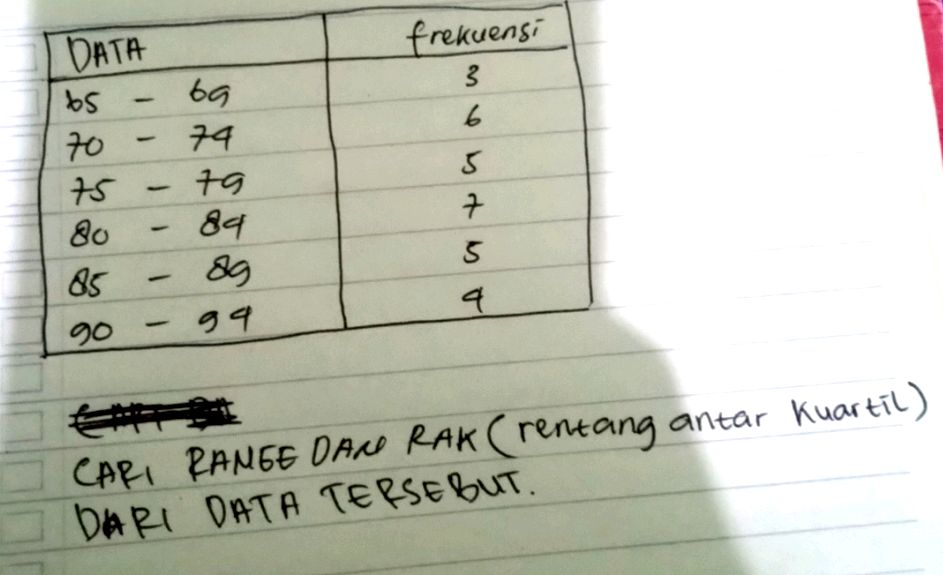 DATA frekuensi
65 - 69 3
70 - 74 6
75 - 79 5
80 - 84 7
85 - 89 5
90 - 94 4
CARI RANGE DAN RAK (rentang antar Kuartil)
DARI DATA TERSEBUT.